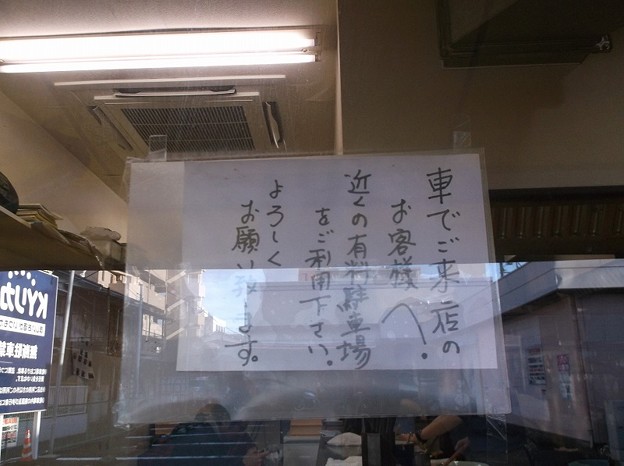 車でご来店の
お客様へ.
近くの有料駐車場
をご利用下さい.
よろしく
お願い致します。
KYリカ